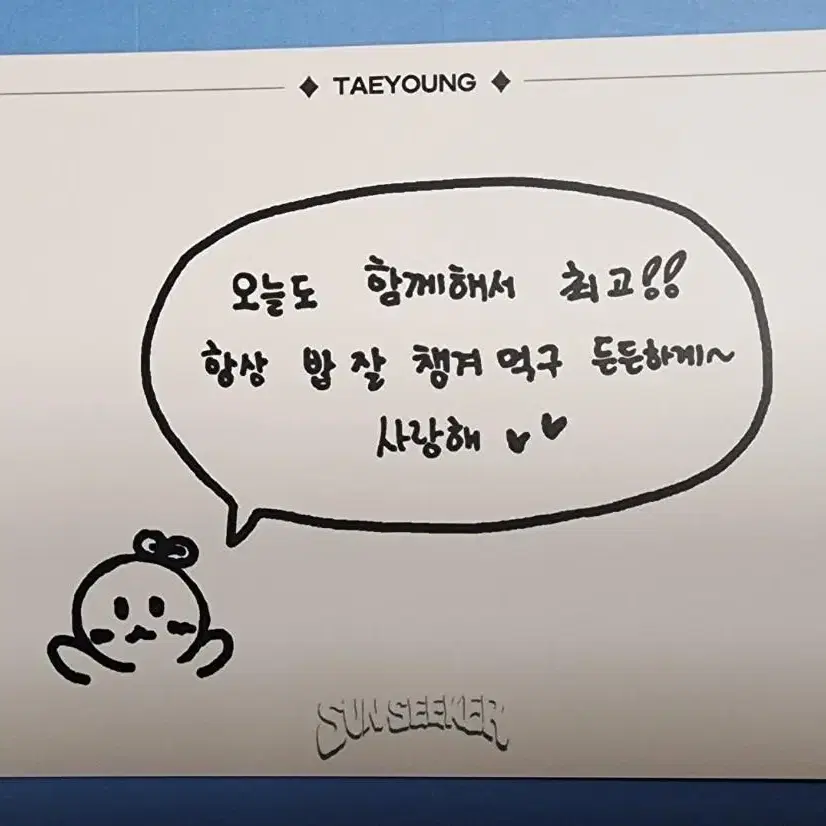 ◆ TAEYOUNG ◆
오늘도 함께해서 최고!!
항상 밥 잘 챙겨 먹구 든든하게~
사랑해 ♥♥
SUN SEEKER